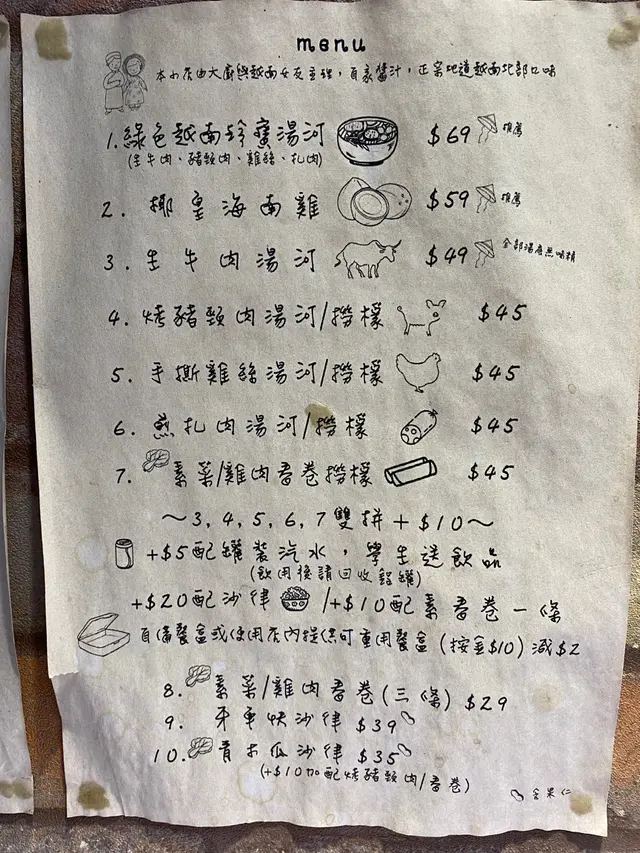 menu
本小店由大廚與越南女友主理，自家醬汁，正宗地道越南北部口味
1. 綠色越南珍寶湯河 $69 推薦
(生牛肉、豬頸肉、雞絲、扎肉)
2. 椰皇海南雞 $59 推薦
3. 生牛肉湯河 $49 全部湯底無味精
4. 烤豬頸肉湯河/撈檬 $45
5. 手撕雞絲湯河/撈檬 $45
6. 煎扎肉湯河/撈檬 $45
7. 素菜/雞肉春卷撈檬 $45
～3, 4, 5, 6, 7 雙拼+$10～
+$5配罐裝汽水，學生送飲品
(飲用後請回收鋁罐)
+$20配沙律 /+$10配素春卷一條
自備餐盒或使用店內提供可重用餐盒 (按金$10) 減$2
8. 素菜/雞肉春卷(三條) $29
9. 牛車快沙律 $39
10. 青木瓜沙律 $35
(+$10加配烤豬頸肉/春卷)
含果仁